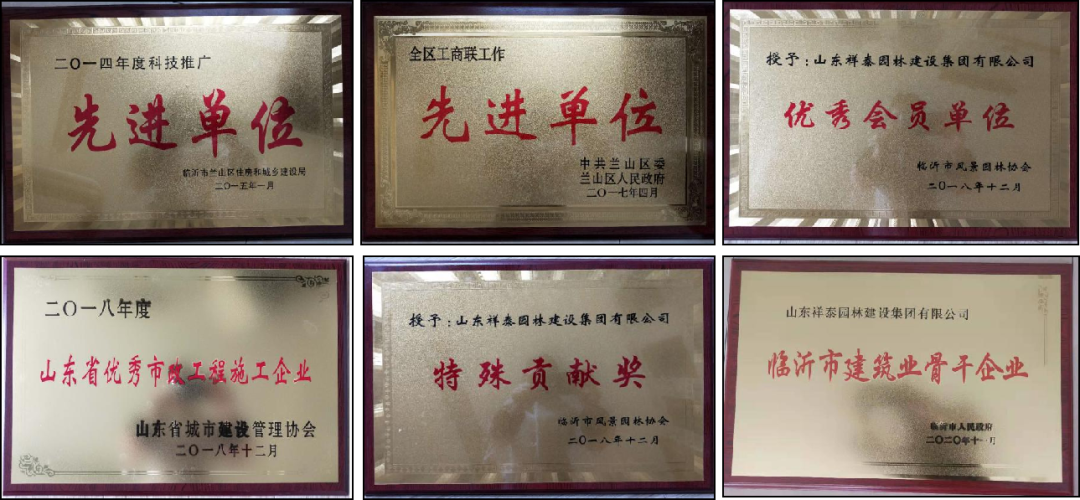 二〇一四年度科技推广
先进单位
临沂市兰山区住房和城乡建设局
二〇一五年一月
全区工商联工作
先进单位
中共兰山区委
兰山区人民政府
二〇一七年四月
授予：山东祥泰园林建设集团有限公司
优秀会员单位
临沂市风景园林协会
二〇一八年十二月
二〇一八年度
山东省优秀市政工程施工企业
山东省城市建设管理协会
二〇一八年十二月
授予：山东祥泰园林建设集团有限公司
特殊贡献奖
临沂市风景园林协会
二〇一八年十二月
山东祥泰园林建设集团有限公司
临沂市建筑业骨干企业
临沂市人民政府
二〇二〇年十一月